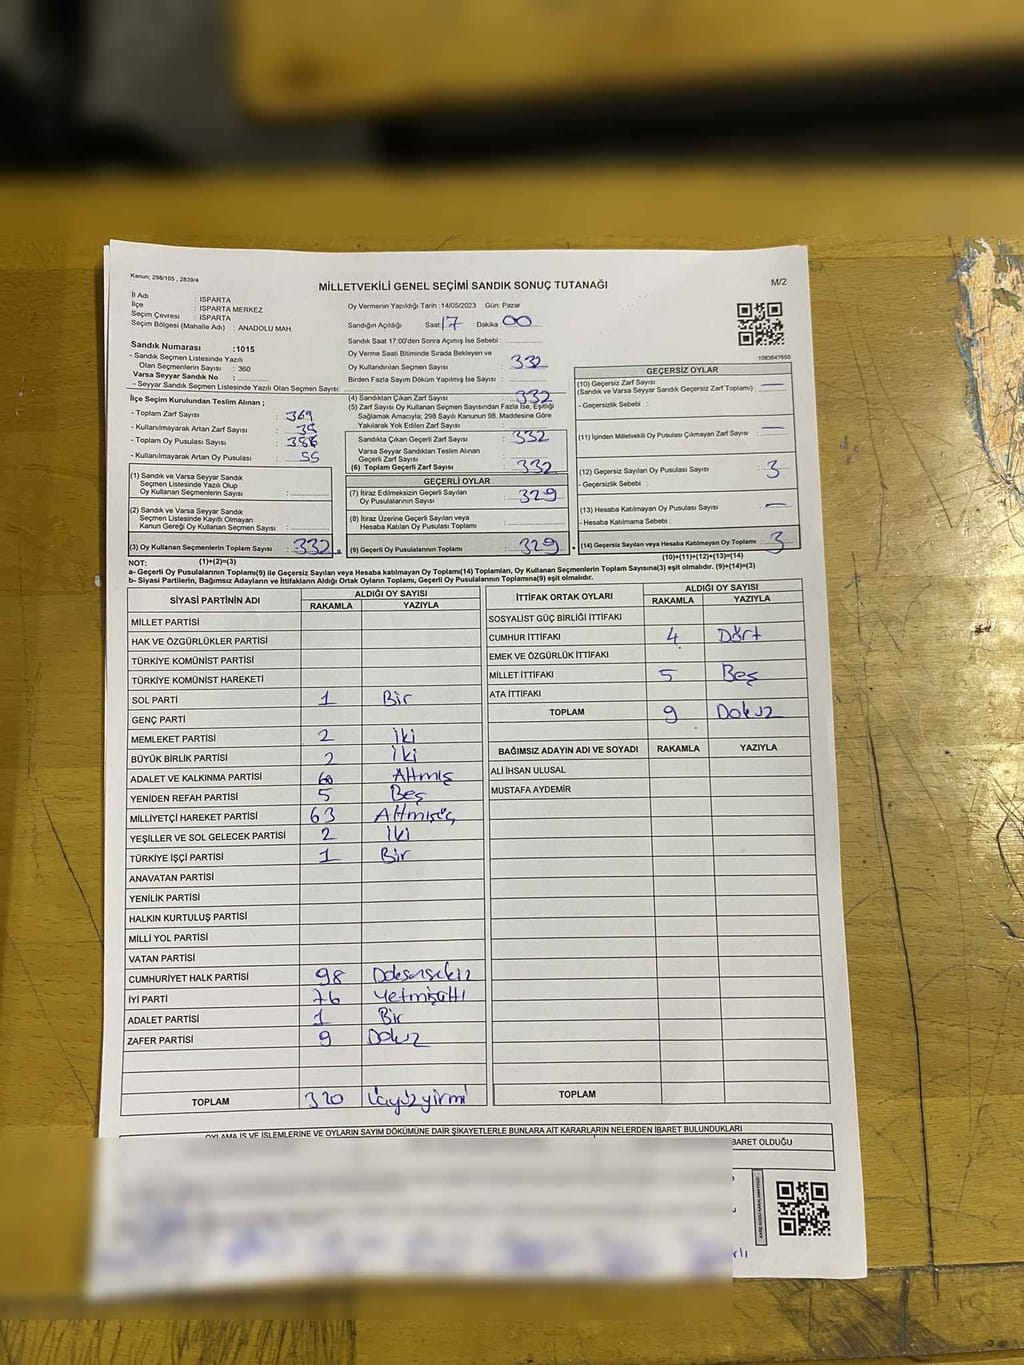 Kanun; 298/105 , 2839/4
MİLLETVEKİLİ GENEL SEÇİMİ SANDIK SONUÇ TUTANAĞI
M/2
İl Adı : ISPARTA
İlçe : ISPARTA MERKEZ
Seçim Çevresi : ISPARTA
Seçim Bölgesi (Mahalle Adı) : ANADOLU MAH.
Sandık Numarası :1015
- Sandık Seçmen Listesinde Yazılı
Olan Seçmenlerin Sayısı : 360
Varsa Seyyar Sandık No :
- Seyyar Sandık Seçmen Listesinde Yazılı Olan Seçmen Sayısı:
Oy Vermenin Yapıldığı Tarih :14/05/2023 Gün: Pazar
Sandığın Açıldığı Saat 17 Dakika 00
Sandık Saat 17:00'den Sonra Açılmış İse Sebebi :
Oy Verme Saati Bitiminde Sırada Bekleyen ve
Oy Kullandırılan Seçmen Sayısı : 332
Birden Fazla Sayım Döküm Yapılmış İse Sayısı :
1083647650
İlçe Seçim Kurulundan Teslim Alınan ;
- Toplam Zarf Sayısı : 369
- Kullanılmayarak Artan Zarf Sayısı :
- Toplam Oy Pusulası Sayısı :
- Kullanılmayarak Artan Oy Pusulası : 55
(1) Sandık ve Varsa Seyyar Sandık
Seçmen Listesinde Yazılı Olup
Oy Kullanan Seçmenlerin Sayısı :
(2) Sandık ve Varsa Seyyar Sandık
Seçmen Listesinde Kayıtlı Olmayan
Kanun Gereği Oy Kullanan Seçmen Sayısı :
(3) Oy Kullanan Seçmenlerin Toplam Sayısı : 332
(1)+(2)=(3)
(4) Sandıktan Çıkan Zarf Sayısı : 332
(5) Zarf Sayısı Oy Kullanan Seçmen Sayısından Fazla İse, Eşitliği
Sağlamak Amacıyla, 298 Sayılı Kanunun 98. Maddesine Göre
Yakılarak Yok Edilen Zarf Sayısı :
Sandıkta Çıkan Geçerli Zarf Sayısı : 332
Varsa Seyyar Sandıktan Teslim Alınan
Geçerli Zarf Sayısı :
(6) Toplam Geçerli Zarf Sayısı : 332
GEÇERLİ OYLAR
(7) İtiraz Edilmeksizin Geçerli Sayılan
Oy Pusulalarının Sayısı : 329
(8) İtiraz Üzerine Geçerli Sayılan veya
Hesaba Katılan Oy Pusulası Toplamı :
(9) Geçerli Oy Pusulalarının Toplamı : 329
GEÇERSİZ OYLAR
(10) Geçersiz Zarf Sayısı : —
(Sandık ve Varsa Seyyar Sandık Geçersiz Zarf Toplamı)
- Geçersizlik Sebebi :
(11) İçinden Milletvekili Oy Pusulası Çıkmayan Zarf Sayısı : —
(12) Geçersiz Sayılan Oy Pusulası Sayısı : 3
- Geçersizlik Sebebi :
(13) Hesaba Katılmayan Oy Pusulası Sayısı : —
- Hesaba Katılmama Sebebi :
(14) Geçersiz Sayılan veya Hesaba Katılmayan Oy Toplamı : 3
(10)+(11)+(12)+(13)=(14)
NOT:
a- Geçerli Oy Pusulalarının Toplamı(9) ile Geçersiz Sayılan veya Hesaba katılmayan Oy Toplamı(14) Toplamları, Oy Kullanan Seçmenlerin Toplam Sayısına(3) eşit olmalıdır. (9)+(14)=(3)
b- Siyasi Partilerin, Bağımsız Adayların ve İttifakların Aldığı Ortak Oyların Toplamı, Geçerli Oy Pusulalarının Toplamına(9) eşit olmalıdır.
SİYASİ PARTİNİN ADI ALDIĞI OY SAYISI
RAKAMLA YAZIYLA
MİLLET PARTİSİ
HAK VE ÖZGÜRLÜKLER PARTİSİ
TÜRKİYE KOMÜNİST PARTİSİ
TÜRKİYE KOMÜNİST HAREKETİ
SOL PARTİ 1 Bir
GENÇ PARTİ
MEMLEKET PARTİSİ 2 İki
BÜYÜK BİRLİK PARTİSİ 2 İki
ADALET VE KALKINMA PARTİSİ 60 Altmış
YENİDEN REFAH PARTİSİ 5 Beş
MİLLİYETÇİ HAREKET PARTİSİ 63 Altmışüç
YEŞİLLER VE SOL GELECEK PARTİSİ 2 İki
TÜRKİYE İŞÇİ PARTİSİ 1 Bir
ANAVATAN PARTİSİ
YENİLİK PARTİSİ
HALKIN KURTULUŞ PARTİSİ
MİLLİ YOL PARTİSİ
VATAN PARTİSİ
CUMHURİYET HALK PARTİSİ 98 Doksansekiz
İYİ PARTİ 76 Yetmişaltı
ADALET PARTİSİ 1 Bir
ZAFER PARTİSİ 9 Dokuz
TOPLAM 320 Üçyüzyirmi
İTTİFAK ORTAK OYLARI ALDIĞI OY SAYISI
RAKAMLA YAZIYLA
SOSYALİST GÜÇ BİRLİĞİ İTTİFAKI
CUMHUR İTTİFAKI 4 Dört
EMEK VE ÖZGÜRLÜK İTTİFAKI
MİLLET İTTİFAKI 5 Beş
ATA İTTİFAKI
TOPLAM 9 Dokuz
BAĞIMSIZ ADAYIN ADI VE SOYADI RAKAMLA YAZIYLA
ALİ İHSAN ULUSAL
MUSTAFA AYDEMİR
TOPLAM
OYLAMA İŞ VE İŞLEMLERİNE VE OYLARIN SAYIM DÖKÜMÜNE DAİR ŞİKAYETLERLE BUNLARA AİT KARARLARIN NELERDEN İBARET BULUNDUKLARI
BARET OLDUĞU